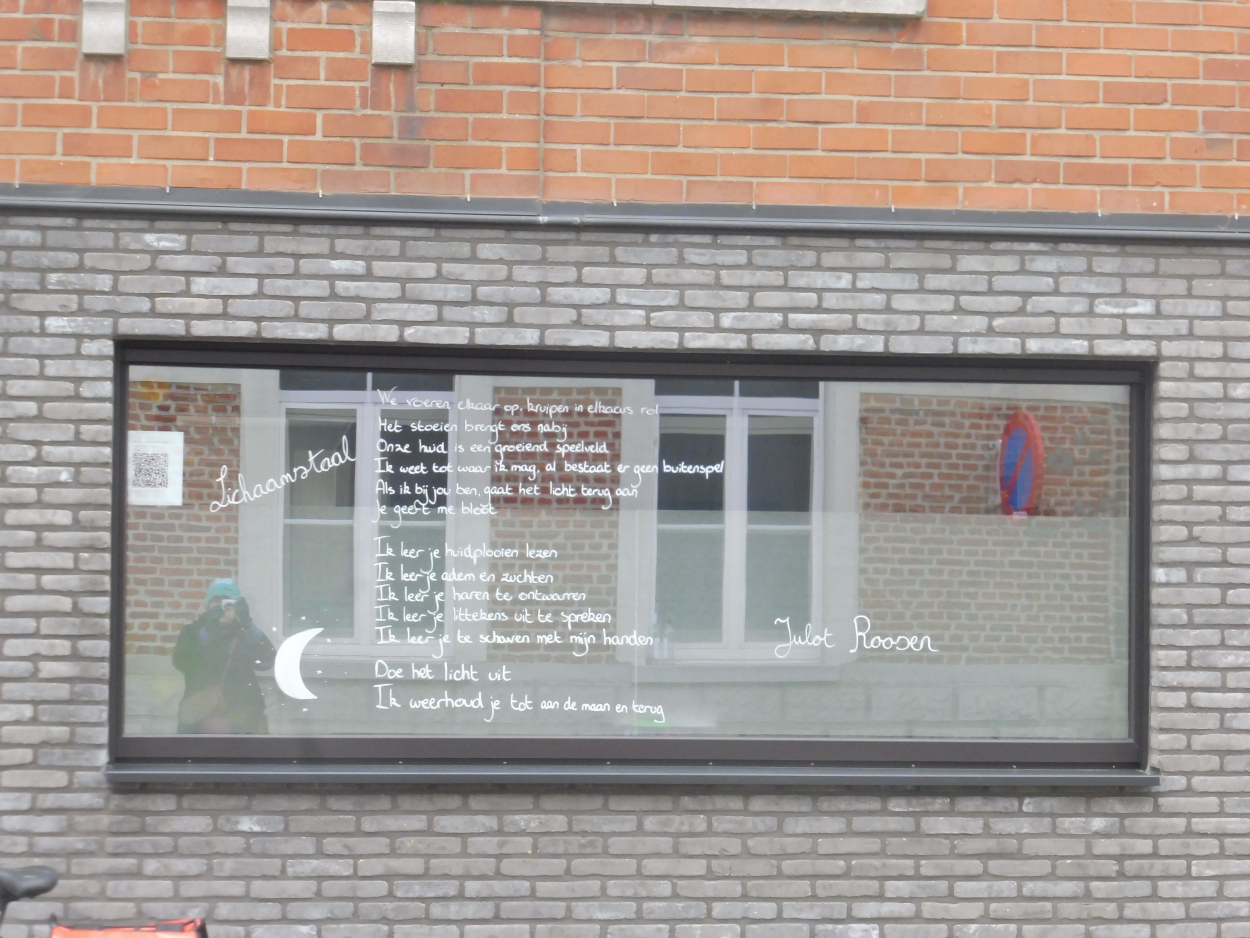 Lichaamstaal
We voeren elkaar op, kruipen in elkaars rol
Het stoeien brengt ons nabij
Onze huid is een groeiend speelveld
Ik weet tot waar ik mag, al bestaat er geen buitenspel
Als ik bij jou ben, gaat het licht terug aan
Je geeft me bloot
Ik leer je huidplooien lezen
Ik leer je adem en zuchten
Ik leer je haren te ontwarren
Ik leer je littekens uit te spreken
Ik leer je te schaven met mijn handen
Doe het licht uit
Ik weerhoud je tot aan de maan en terug
Julot Roosen